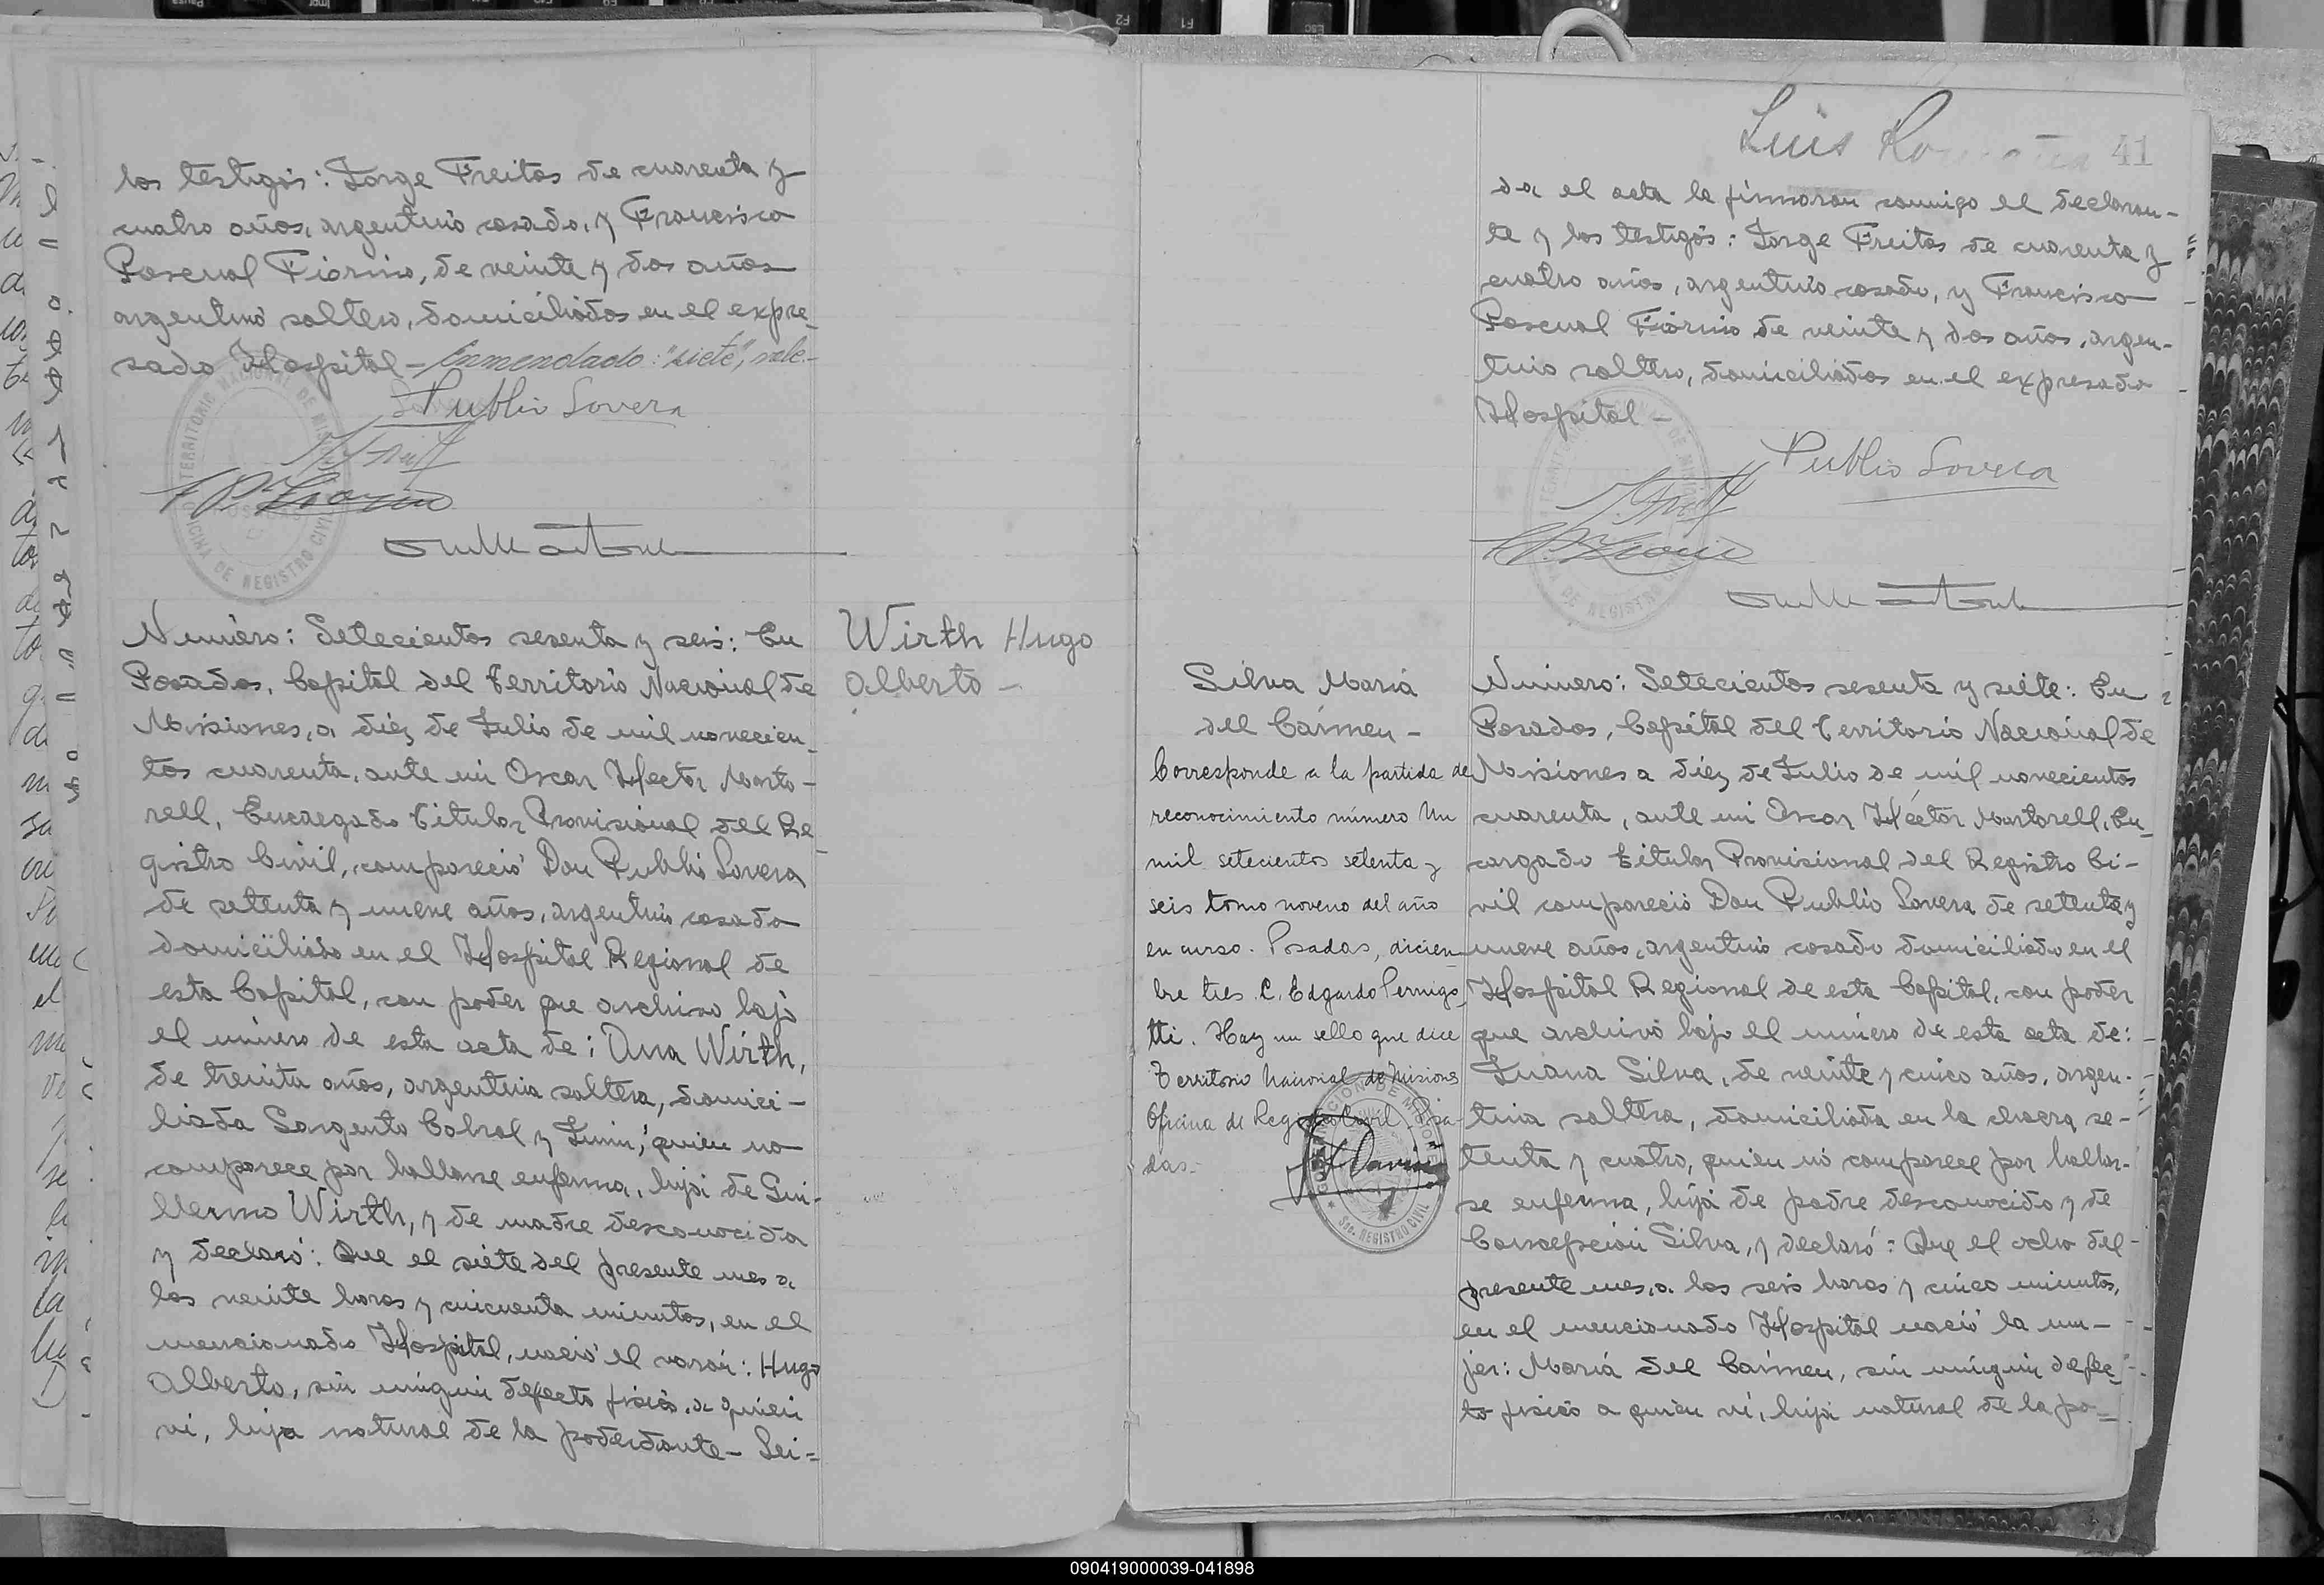 los testigos: Jorge Freitas de cuarenta y
cuatro años, argentino casado, y Francisco
Pascual Fiorino, de veinte y dos años
argentino soltero, domiciliados en el expre-
sado Hospital - Enmendado: "siete", vale.-
Publio Lovera
TERRITORIO NACIONAL DE MIS
OFICINA DE REGISTRO CIVIL
Número: Setecientos sesenta y seis: En
Posadas, Capital del Territorio Nacional de
Misiones, a diez de Julio de mil novecien-
tos cuarenta, ante mi Oscar Hector Marto-
rell, Encargado Titular Provisional del Re-
gistro Civil, compareció Don Publio Lovera
de setenta y nueve años, argentino casado
domiciliado en el Hospital Regional de
esta Capital, con poder que archivo bajo
el número de esta acta de: Ana Wirth,
de treinta años, argentina soltera, domici-
liada Sargento Cabral y Junin, quien no
comparece por hallarse enferma, hija de Gui-
llermo Wirth, y de madre desconocida
y declaró: Que el siete del presente mes a
las veinte horas y cincuenta minutos, en el
mencionado Hospital, nació el varón: Hugo
Alberto, sin ningun defecto fisico, a quien
vi, hijo natural de la poderdante - Lei=
Wirth Hugo
Alberto -
Luis Ro
41
da el acta la firmaron conmigo el declaran-
te y los testigos: Jorge Freitas de cuarenta y
cuatro años, argentino casado, y Francisco
Pascual Fiorino de veinte y dos años, argen-
tino soltero, domiciliados en el expresado
Hospital -
Publio Lovera
DE REGISTRO
Silva María
del Cármen -
Corresponde a la partida de
reconocimiento número Un
mil setecientos setenta y
seis tomo noveno del año
en curso. Posadas, diciem-
bre tres. C. Edgardo Pernigo-
tti. Hay un sello que dice
Territorio Nacional de Misiones
Oficina de Registro Civil Posa-
das.-
Sec. REGISTRO CIVIL
Número: Setecientos sesenta y siete: En
Posadas, Capital del Territorio Nacional de
Misiones a diez de Julio de mil novecientos
cuarenta, ante mi Oscar Héctor Martorell, En-
cargado Titular Provisional del Registro Ci-
vil compareció Don Publio Lovera de setenta y
nueve años, argentino casado domiciliado en el
Hospital Regional de esta Capital, con poder
que archivo bajo el número de esta acta de:
Juana Silva, de veinte y cinco años, argen-
tina soltera, domiciliada en la chacra se-
tenta y cuatro, quien no comparece por hallar-
se enferma, hija de padre desconocido y de
Concepción Silva, y declaró: Que el ocho del
presente mes, a las seis horas y cinco minutos,
en el mencionado Hospital nació la mu-
jer: María del Cármen, sin ningun defec-
to fisico a quien vi, hija natural de la po=
090419000039-041898